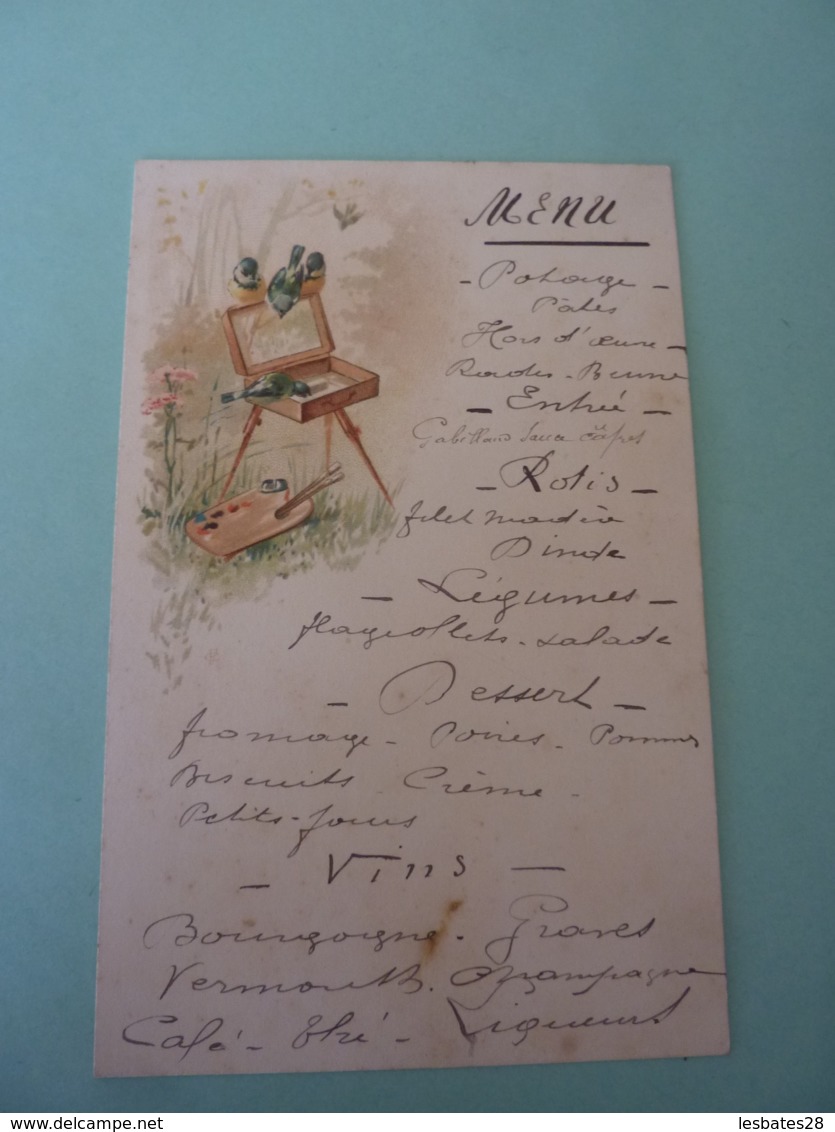 MENU
- Potage -
Pâtes
Hors d'œuvre -
Radis - Beurre
- Entrée -
Gabillaud sauce câpres
- Rotis -
filet madère
Dinde
- Légumes -
flageollets - salade
- Dessert -
fromage - Poires - Pommes
Biscuits - Crème -
Petits-fours
- Vins -
Bourgoigne - Graves
Vermouth. Champagne
Café - thé - Liqueurs
www.delcampe.net
lesbates28